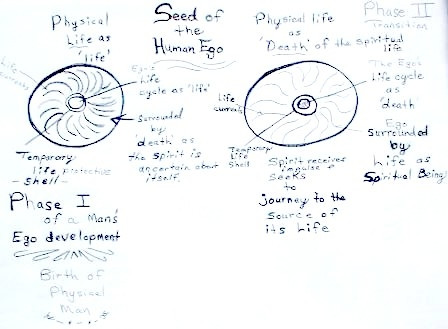 Physical
Life as
'life'
Life
currents
Seed of
the
Human Ego
Ego's
Life
cycle as 'life'
Surrounded
by
'death' as
the Spirit is
uncertain about
itself.
Temporary
life protective
- Shell -
Phase I
of a Man's
Ego development
Birth of
Physical
Man
Phase II
Transition
Physical life
as
'Death' of the Spiritual
life
The Egos
Life cycle
as
'death
Life
currents
Ego
Surrounded
by
Life as
Spiritual Being
Temporary
Life
Shell
Spirit receives
impulse &
seeks
to
journey to the
source of
its Life